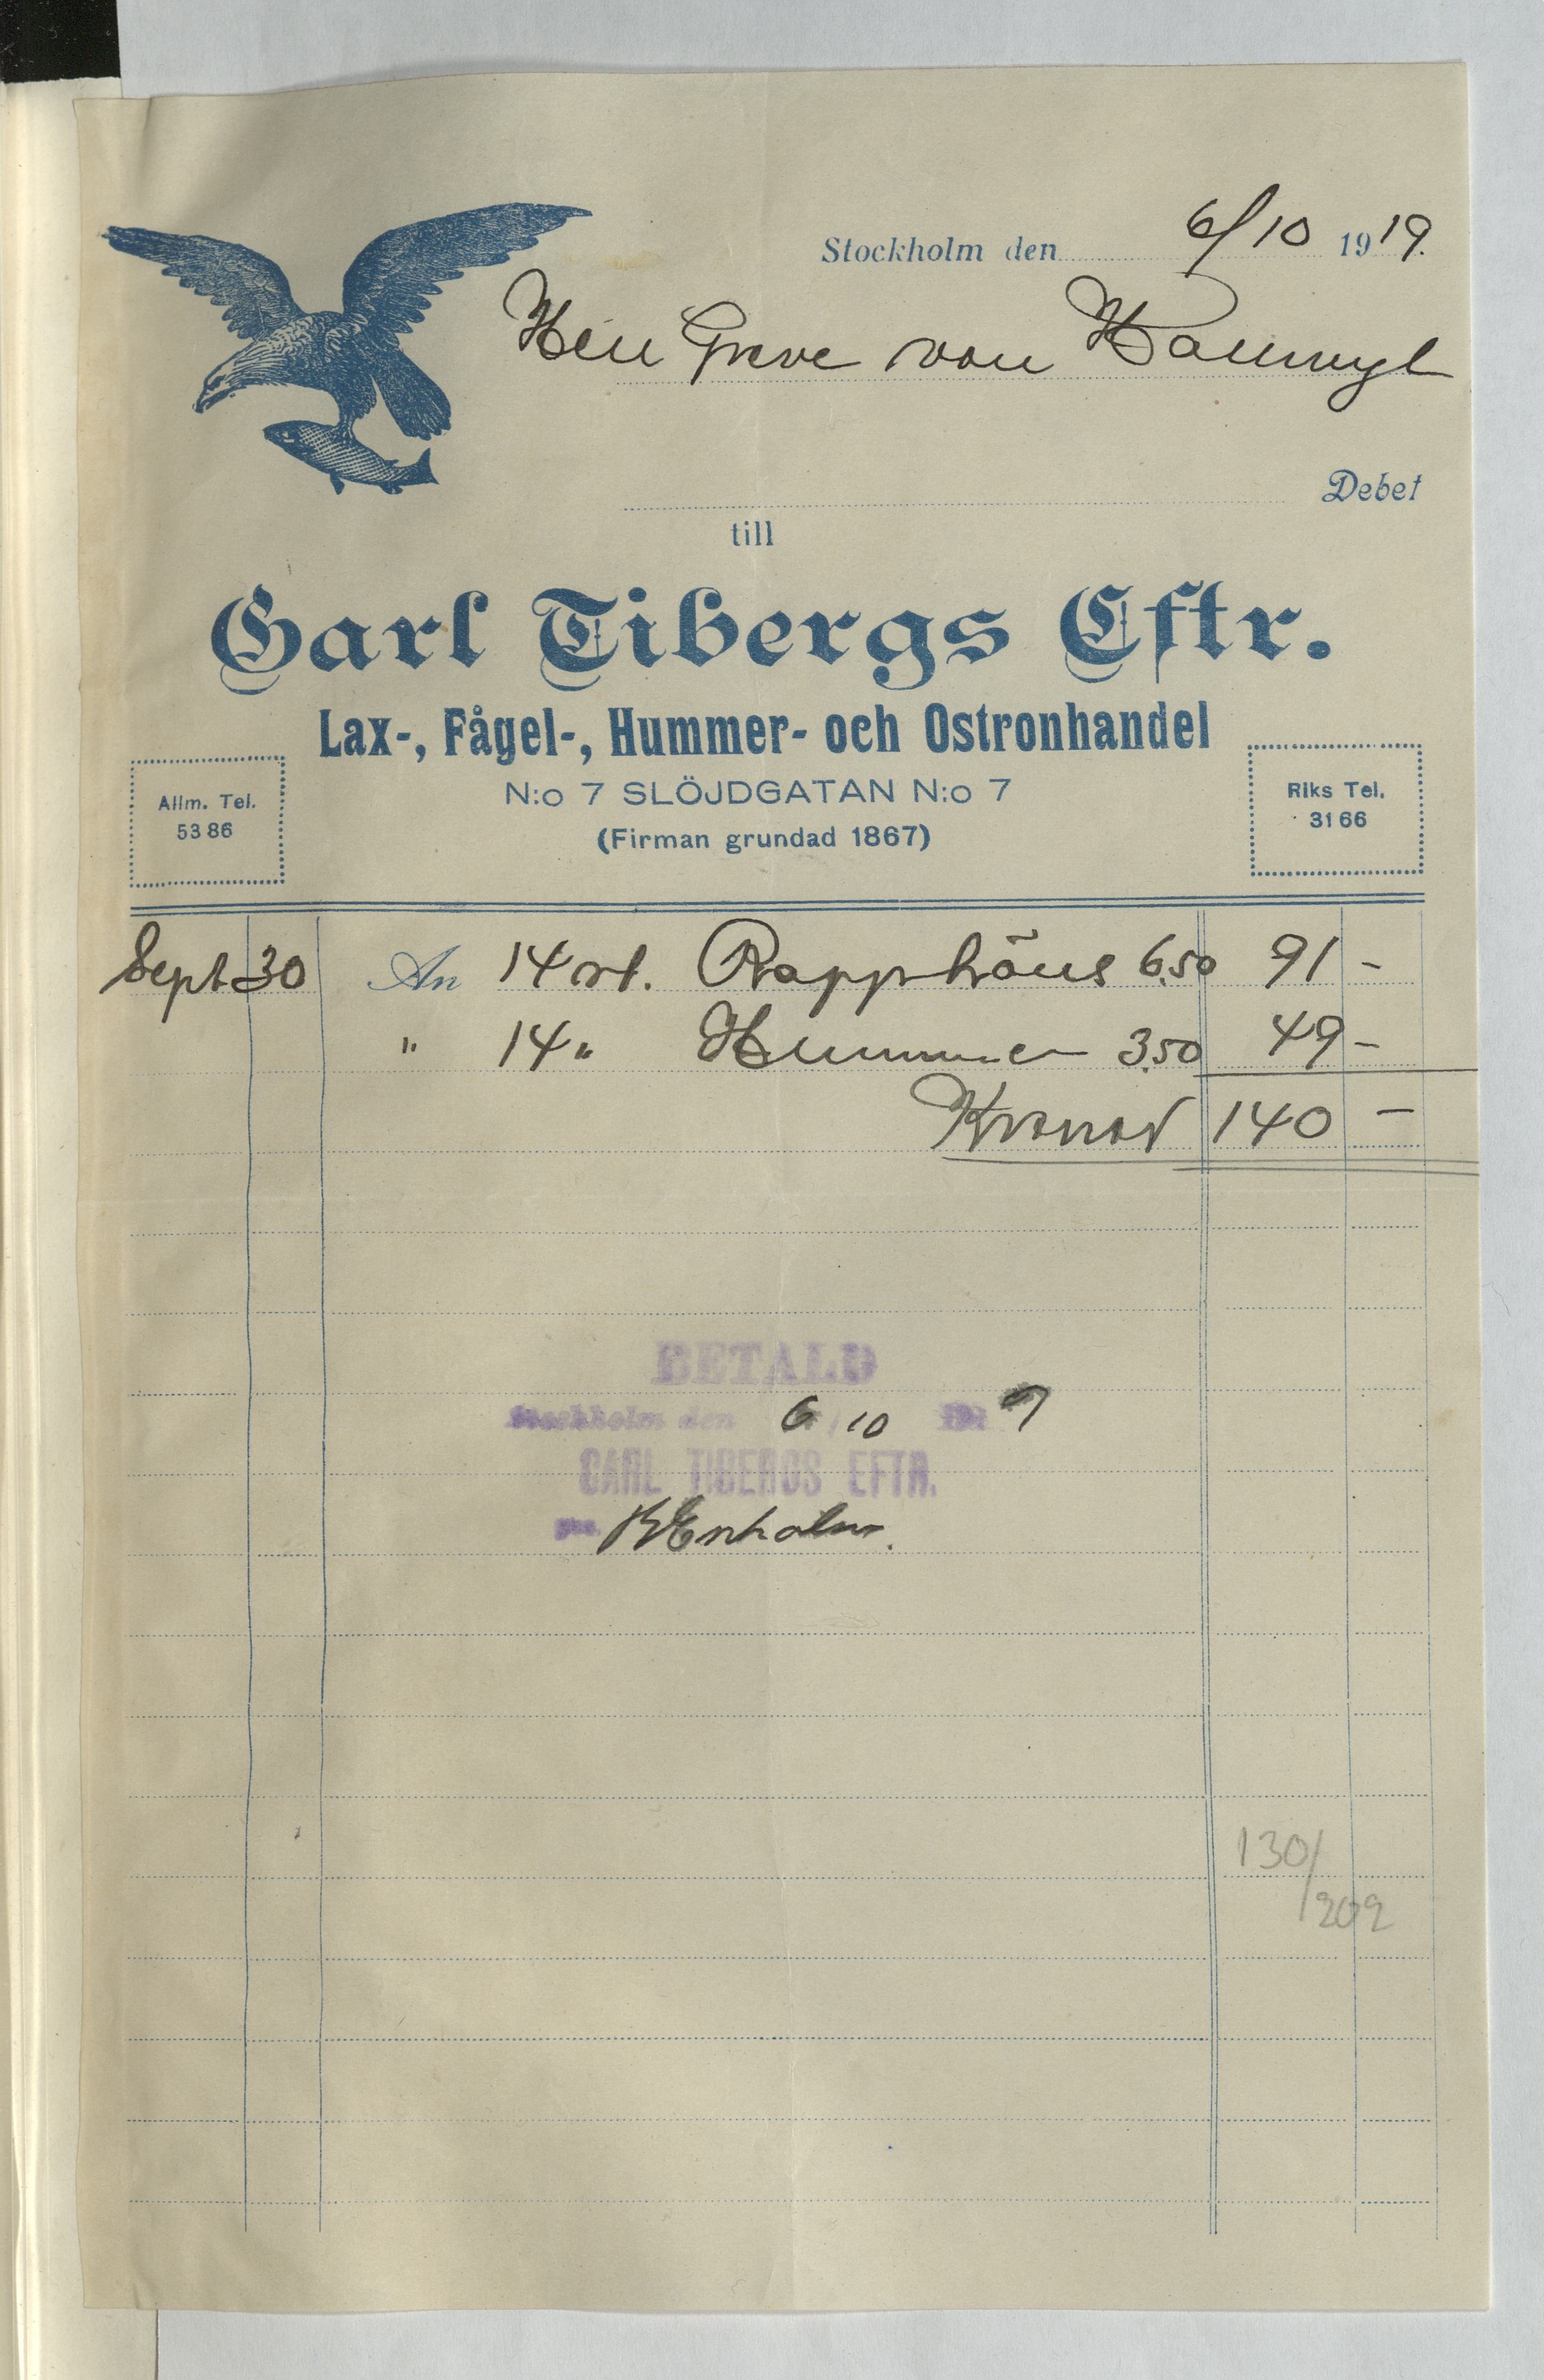 Stockholm den 6/10 1919.
Herr Greve von Hallwyl
Debet
till
Carl Tibergs Eftr.
Lax-, Fågel-, Hummer- och Ostronhandel
N:o 7 SLÖJDGATAN N:o 7
(Firman grundad 1867)
Allm. Tel.
5386
Riks Tel.
3166
Sept 30 An 14 st. Rapphöns 6.50 91 -
" 14 " Hummer 3.50 49 -
Kronor 140 -
BETALD
Stockholm den 6/10 1919
CARL TIBERGS EFTR.
130/
202